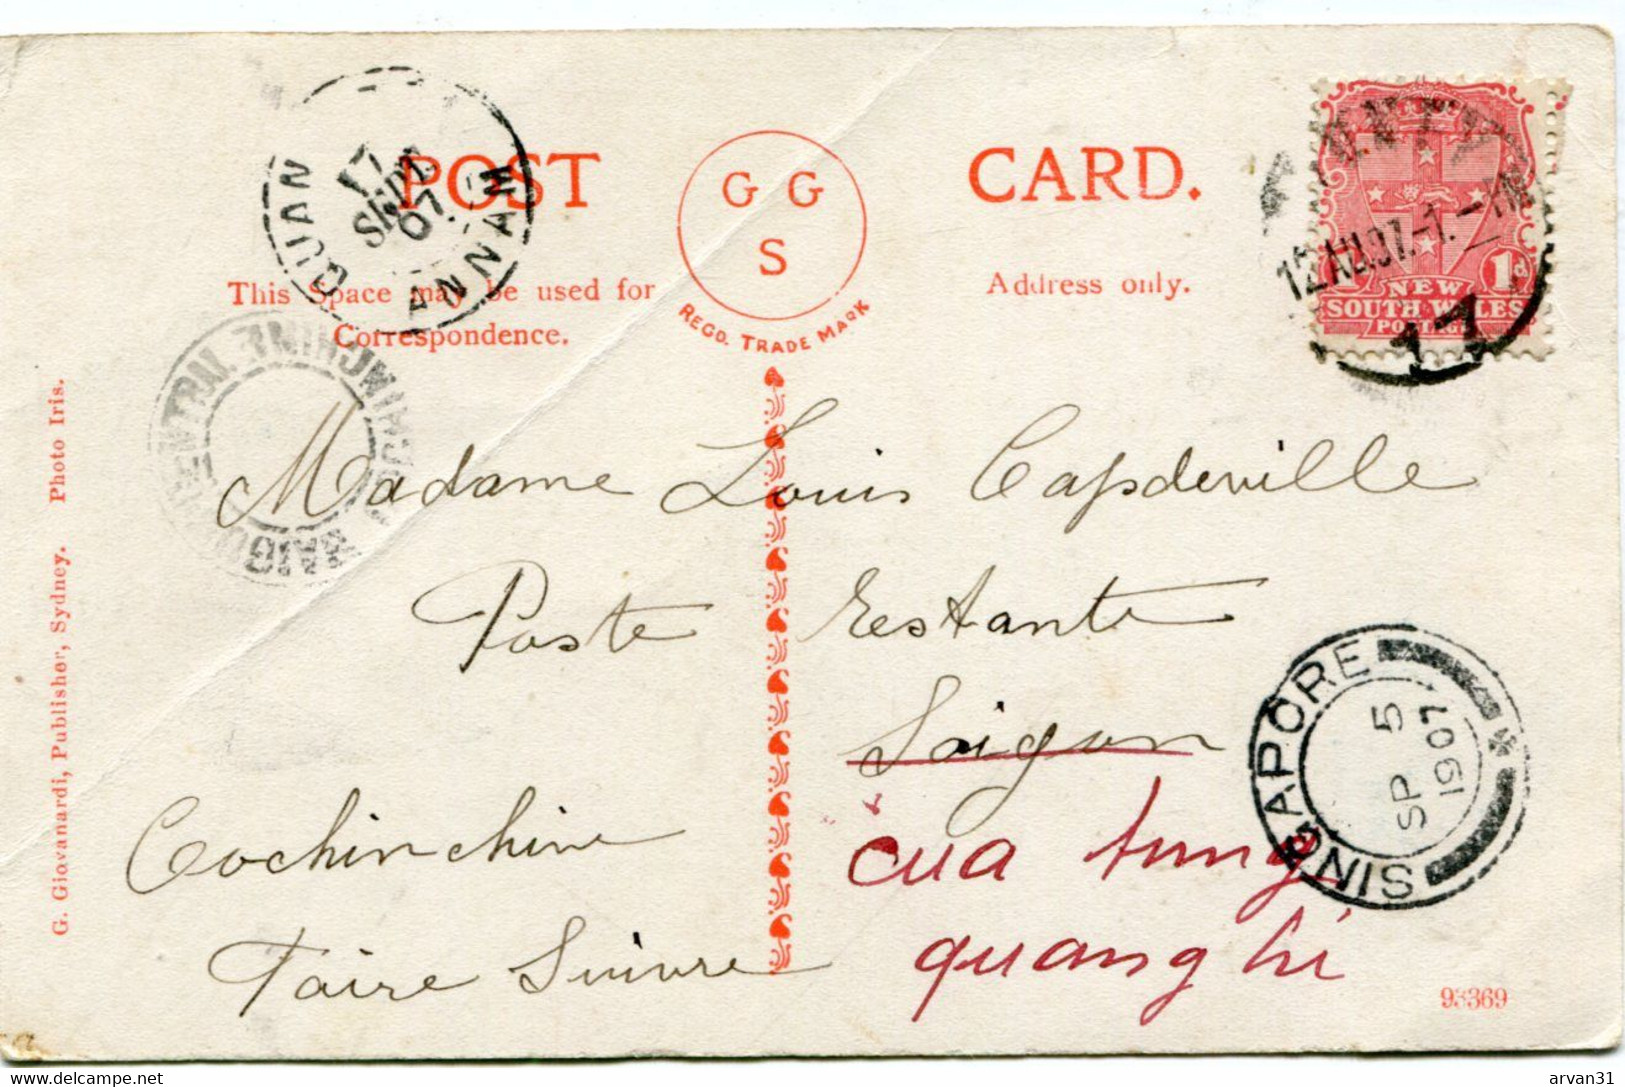 POST CARD.
G G
S
REGD. TRADE MARK
This Space may be used for
Correspondence.
Address only.
QUAN
17
SEPT
07
ANNAM
SAIGON CENTRAL
COCHINCHINE
SYDNEY
12 AU.07. 1. - PM
17
1d
NEW
SOUTH WALES
POSTAGE
Madame Louis Capdeville
Poste Restante
Saigon
Cochinchine
Faire Suivre
cua tung
quang hi
SINGAPORE
SP 5
1907
G. Giovanardi, Publisher, Sydney. Photo Iris.
93369
arvan31